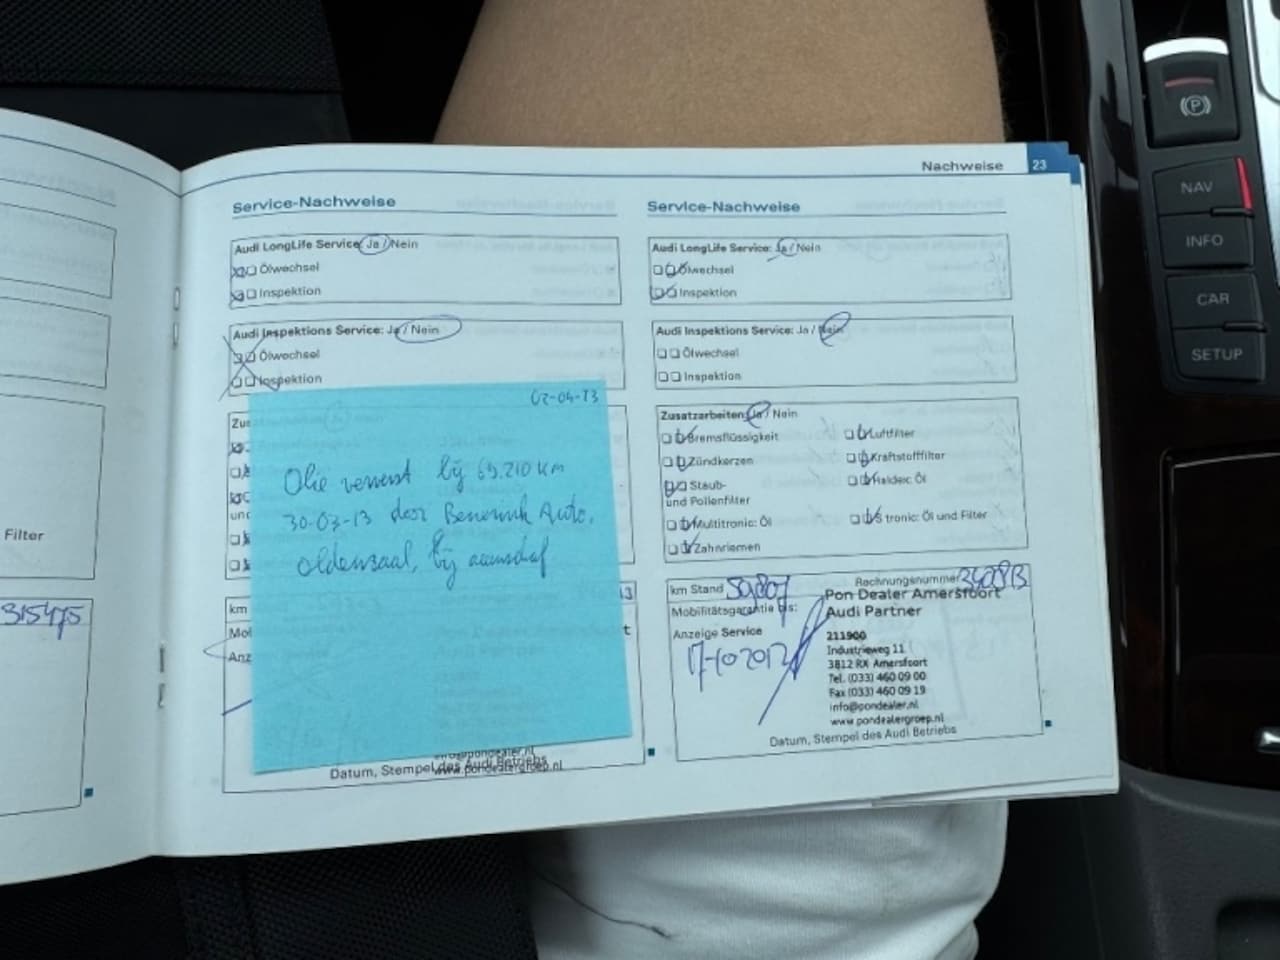 Nachweise 23
Service-Nachweise
Audi LongLife Service: Ja / Nein
Ölwechsel
Inspektion
Audi Inspektions Service: Ja / Nein
Ölwechsel
Inspektion
Zus
und
km
Mob
Anz
02-04-13
Olie ververst bij 69.210 km
30-03-13 door Auto.
Oldenzaal, bij aanschaf
info@pondealer.nl
Datum, Stempel des Audi Betriebs
www.pondealergroep.nl
Service-Nachweise
Audi LongLife Service: Ja / Nein
Ölwechsel
Inspektion
Audi Inspektions Service: Ja / Nein
Ölwechsel
Inspektion
Zusatzarbeiten: Ja / Nein
Bremsflüssigkeit Luftfilter
Zündkerzen Kraftstofffilter
Staub- Haldex: Öl
und Pollenfilter
Multitronic: Öl S tronic: Öl und Filter
Zahnriemen
km Stand 59807 Rechnungsnummer
Pon Dealer Amersfoort
Mobilitätsgarantie bis: Audi Partner
Anzeige Service 211900
17-10-2012 Industrieweg 11
3812 RX Amersfoort
Tel. (033) 460 09 00
Fax (033) 460 09 19
info@pondealer.nl
www.pondealergroep.nl
Datum, Stempel des Audi Betriebs
Filter
315475
P
NAV
INFO
CAR
SETUP